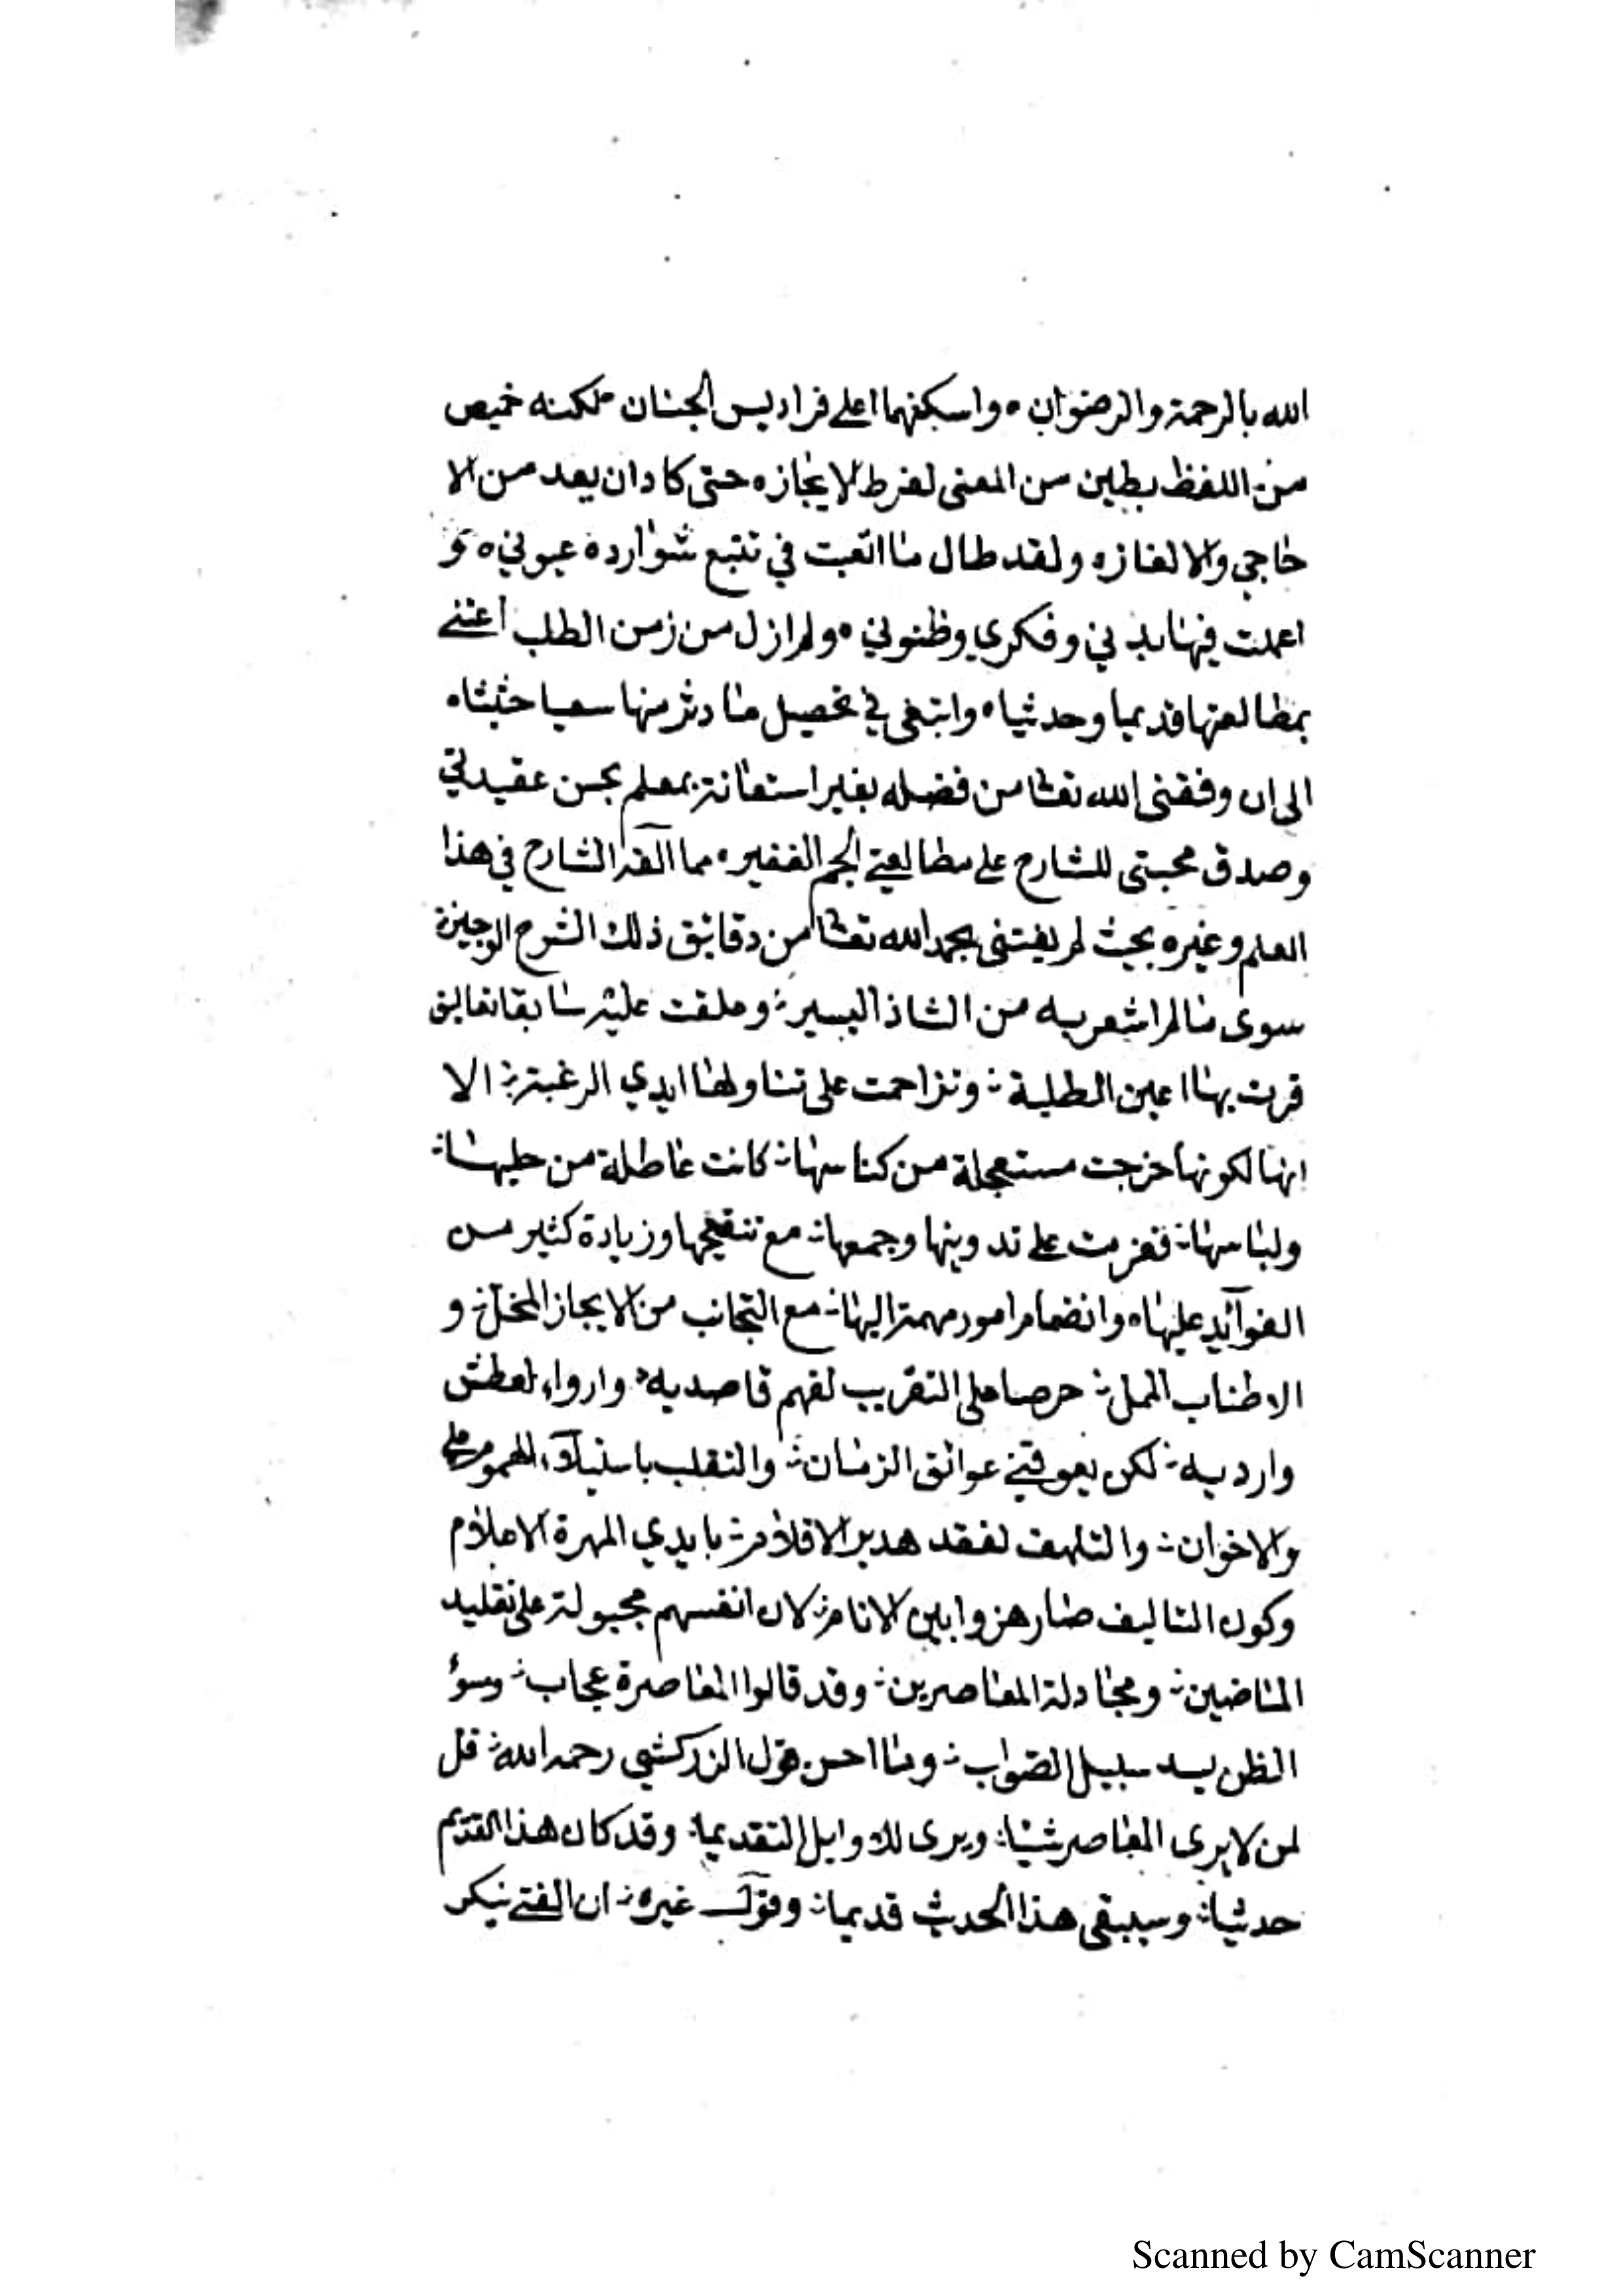 الله بالرحمة والرضوان ٠ واسكنهما اعلى فراديس الجنان لكنه خميص
من اللفظ بطين من المعنى لفرط الايجازه حتى كاد ان يعد من الا
حاجي والالغازه ولقد طال ما اتعبت في تتبع شوارده عيوني ٥ و
اعملت فيها بدني وفكري وظنوني ٥ ولم ازل من زمن الطلب اعتنے
بمطالعتها قديما وحدثيا ٥ وابتغى في تحصيل ما دثر منها سعيا حثيثاه
الى ان وفقنى الله تعا من فضله بغير استعانة بمعلم بحسن عقيدتي
وصدق محبتى للشارح على مطالعتے الجم الغفير ٥ مما الفه الشارح في هذا
العلم وغيره بحيث لم يفتنى بحمد الله تعا من دقائق ذلك الشرح الوجيز
سوى ما لم اشعر به من الشاذ اليسير ؛ وعلقت عليه سابقا تعاليق
قرت بها اعين الطلبة ؛ وتزاحمت على تناولها ايدي الرغبة ؛ الا
انها لكونها خرجت مستعجلة من كناسها ؛ كانت عاطلة من حليها ؛
ولباسها ؛ فعزمت على تدوينها وجمعها ؛ مع تنقيحها وزيادة كثير من
الفوآئد عليها ٥ وانضمام امور مهمة اليها ؛ مع التجانب من الايجاز المخل ؛ و
الاطناب الممل ؛ حرصا على التقريب لفهم قاصديه ؛ وارواء لعطش
وارديه ؛ لكن يعوقنے عوائق الزمان ؛ والتقلب باستيلآء الهموم على
والاخوان ؛ والتلهف لفقد هدير الاقلام ؛ بايدي المهرة الاعلام
وكون التاليف صار هزوا بين الانام ؛ لان انفسهم مجبولة على تقليد
الماضين ؛ ومجادلة المعاصرين ؛ وقد قالوا المعاصرة عجاب ؛ وسوٴ
الظن يسد سبيل الصواب ؛ وما احسن قول الزركشي رحمه الله ؛ قل
لمن لا يرى المعاصر شيئا ؛ ويرى للاوايل التقديما ؛ وقد كان هذا القديم
حدثيا ؛ وسيبقى هذا الحدث قديما ؛ وقول غيره ؛ ان الفتے ينكر
Scanned by CamScanner